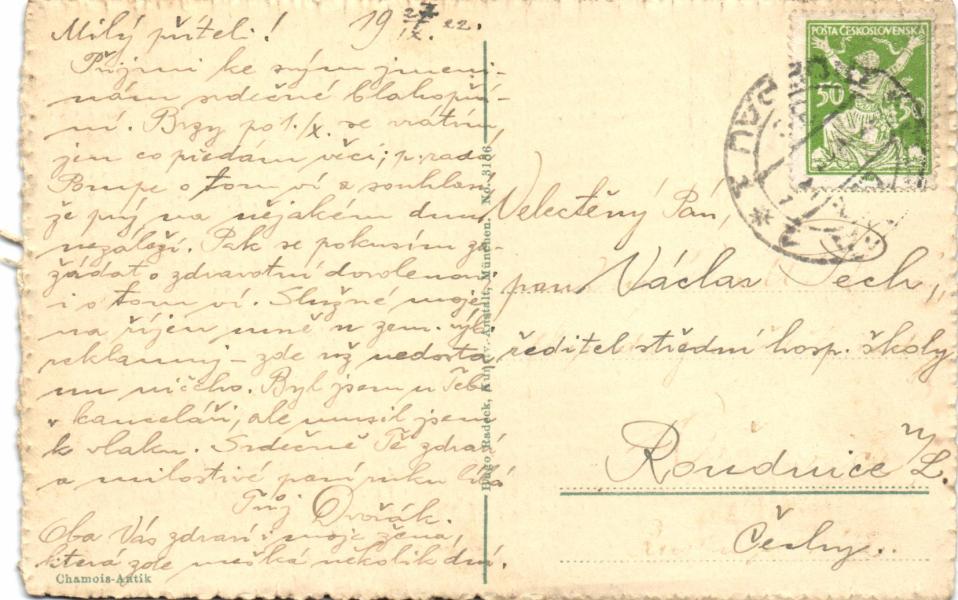 Milý příteli! 19 27/IX. 22.
Přijmi ke svým jmeni-
nám srdečné blahopřá-
ní. Brzy po 1./X. se vrátím,
jen co předám věci; p. rada
Pompe o tom ví a souhlasí
že prý na nějakém dnu
nezáleží. Pak se pokusím za-
žádat o zdravotní dovolenou
i o tom ví. Služné moje
na říjen mně u zem.
reklamuj – zde už nedosta
nu ničeho. Byl jsem u Tebe
v kanceláři, ale musil jsem
k vlaku. Srdečně Tě zdraví
a milostivé paní ruku líbá
Tvůj Dvořák.
Oba Vás zdraví i moje žena,
která zde mešká několik dní.
Chamois-Antik
Hugo Radeck, Kunstv.-Anstalt, München. No. 3186
POŠTA ČESKOSLOVENSKÁ
50 50
Velectěný Pán,
pan Václav Pech,
ředitel střední hosp. školy
Roudnice n/L.
Čechy.